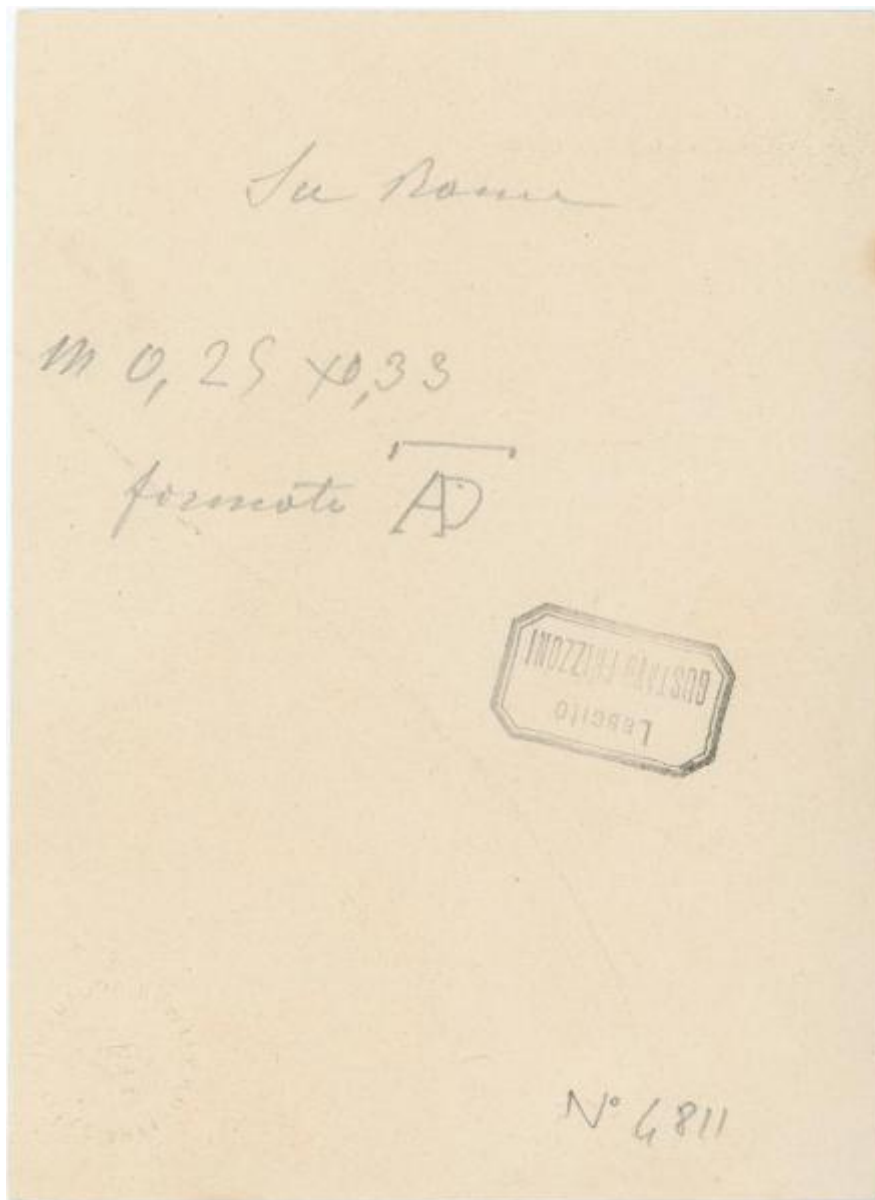 Su Rame
m 0,25 x0,33
firmato AD
Lascito
GUSTAVO FRIZZONI
N° 4811